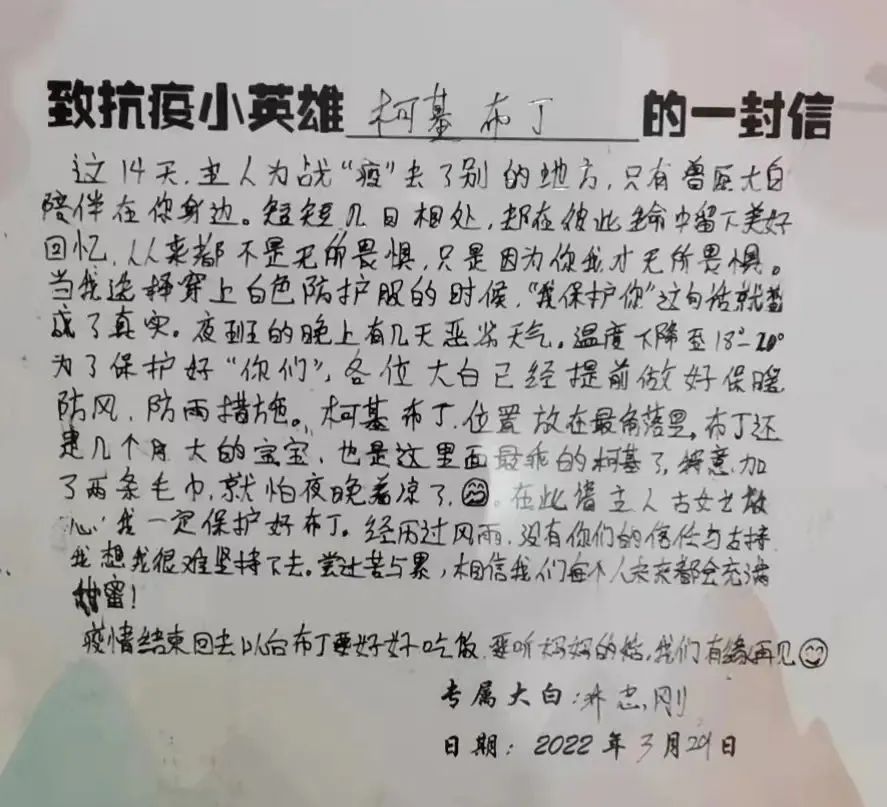 致抗疫小英雄 柯基 布丁 的一封信
这14天，主人为战“疫”去了别的地方，只有兽医大白
陪伴在你身边。短短几日相处，却在彼此生命中留下美好
回忆，从来都不是无所畏惧，只是因为你我才无所畏惧。
当我选择穿上白色防护服的时候，“我保护你”这句话就
成了真实。夜班的晚上有几天恶劣天气。温度下降至18°-20°
为了保护好“你们”，各位大白已经提前做好保暖
防风，防雨措施。柯基布丁，位置放在最角落里。布丁还
是几个月大的宝宝，也是这里面最乖的柯基了，特意加
了两条毛巾，就怕夜晚着凉了，😊。在此请主人古女士放
心，我一定保护好布丁。经历过风雨，没有你们的信任与支持
我想我很难坚持下去。尝过苦与累，相信我们每个人未来都会充满
甜蜜！
疫情结束回去以后布丁要好好吃饭，要听妈妈的话，我们有缘再见😊
专属大白：忠刚
日期：2022年3月29日